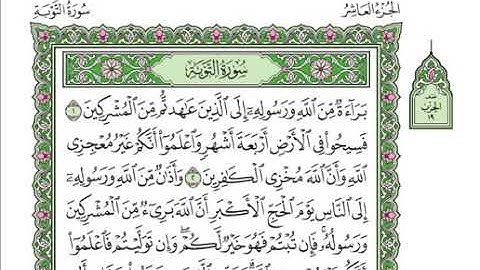 سُورَةُ التَّوْبَةِ
الجُزْءُ العَاشِرُ
سُورَةُ التَّوْبَةِ
الحزب
١٩
بَرَآءَةٌ مِّنَ ٱللَّهِ وَرَسُولِهِۦٓ إِلَى ٱلَّذِينَ عَٰهَدتُّم مِّنَ ٱلْمُشْرِكِينَ ١
فَسِيحُوا۟ فِى ٱلْأَرْضِ أَرْبَعَةَ أَشْهُرٍ وَٱعْلَمُوٓا۟ أَنَّكُمْ غَيْرُ مُعْجِزِى
ٱللَّهِ وَأَنَّ ٱللَّهَ مُخْزِى ٱلْكَٰفِرِينَ ٢ وَأَذَٰنٌ مِّنَ ٱللَّهِ وَرَسُولِهِۦٓ
إِلَى ٱلنَّاسِ يَوْمَ ٱلْحَجِّ ٱلْأَكْبَرِ أَنَّ ٱللَّهَ بَرِىٓءٌ مِّنَ ٱلْمُشْرِكِينَ
وَرَسُولُهُۥ فَإِن تُبْتُمْ فَهُوَ خَيْرٌ لَّكُمْ وَإِن تَوَلَّيْتُمْ فَٱعْلَمُوٓا۟